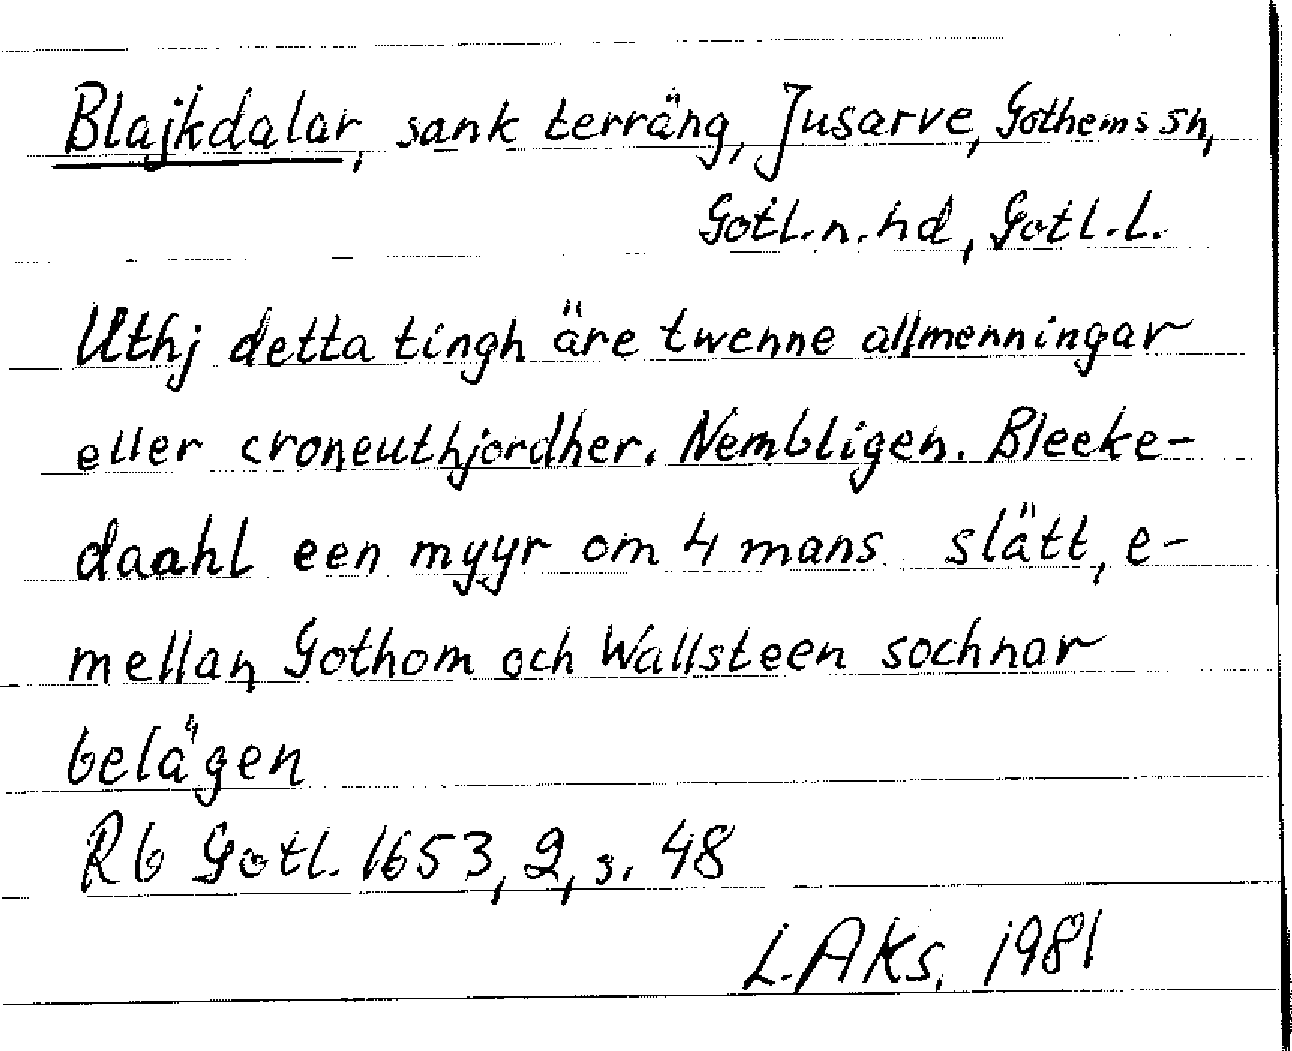 Blajkdalar, sank terräng, Jusarve, Gothems sn,
Gotl. n. hd, Gotl. l.
Uthj detta tingh äre twenne allmenningar
eller croneuthjordher. Nembligen. Bleeke-
daahl een myyr om 4 mans slätt, e-
mellan Gothom och Wallsteen sochnar
belägen
Rb Gotl. 1653, 2, s. 48
L. AKs. 1981